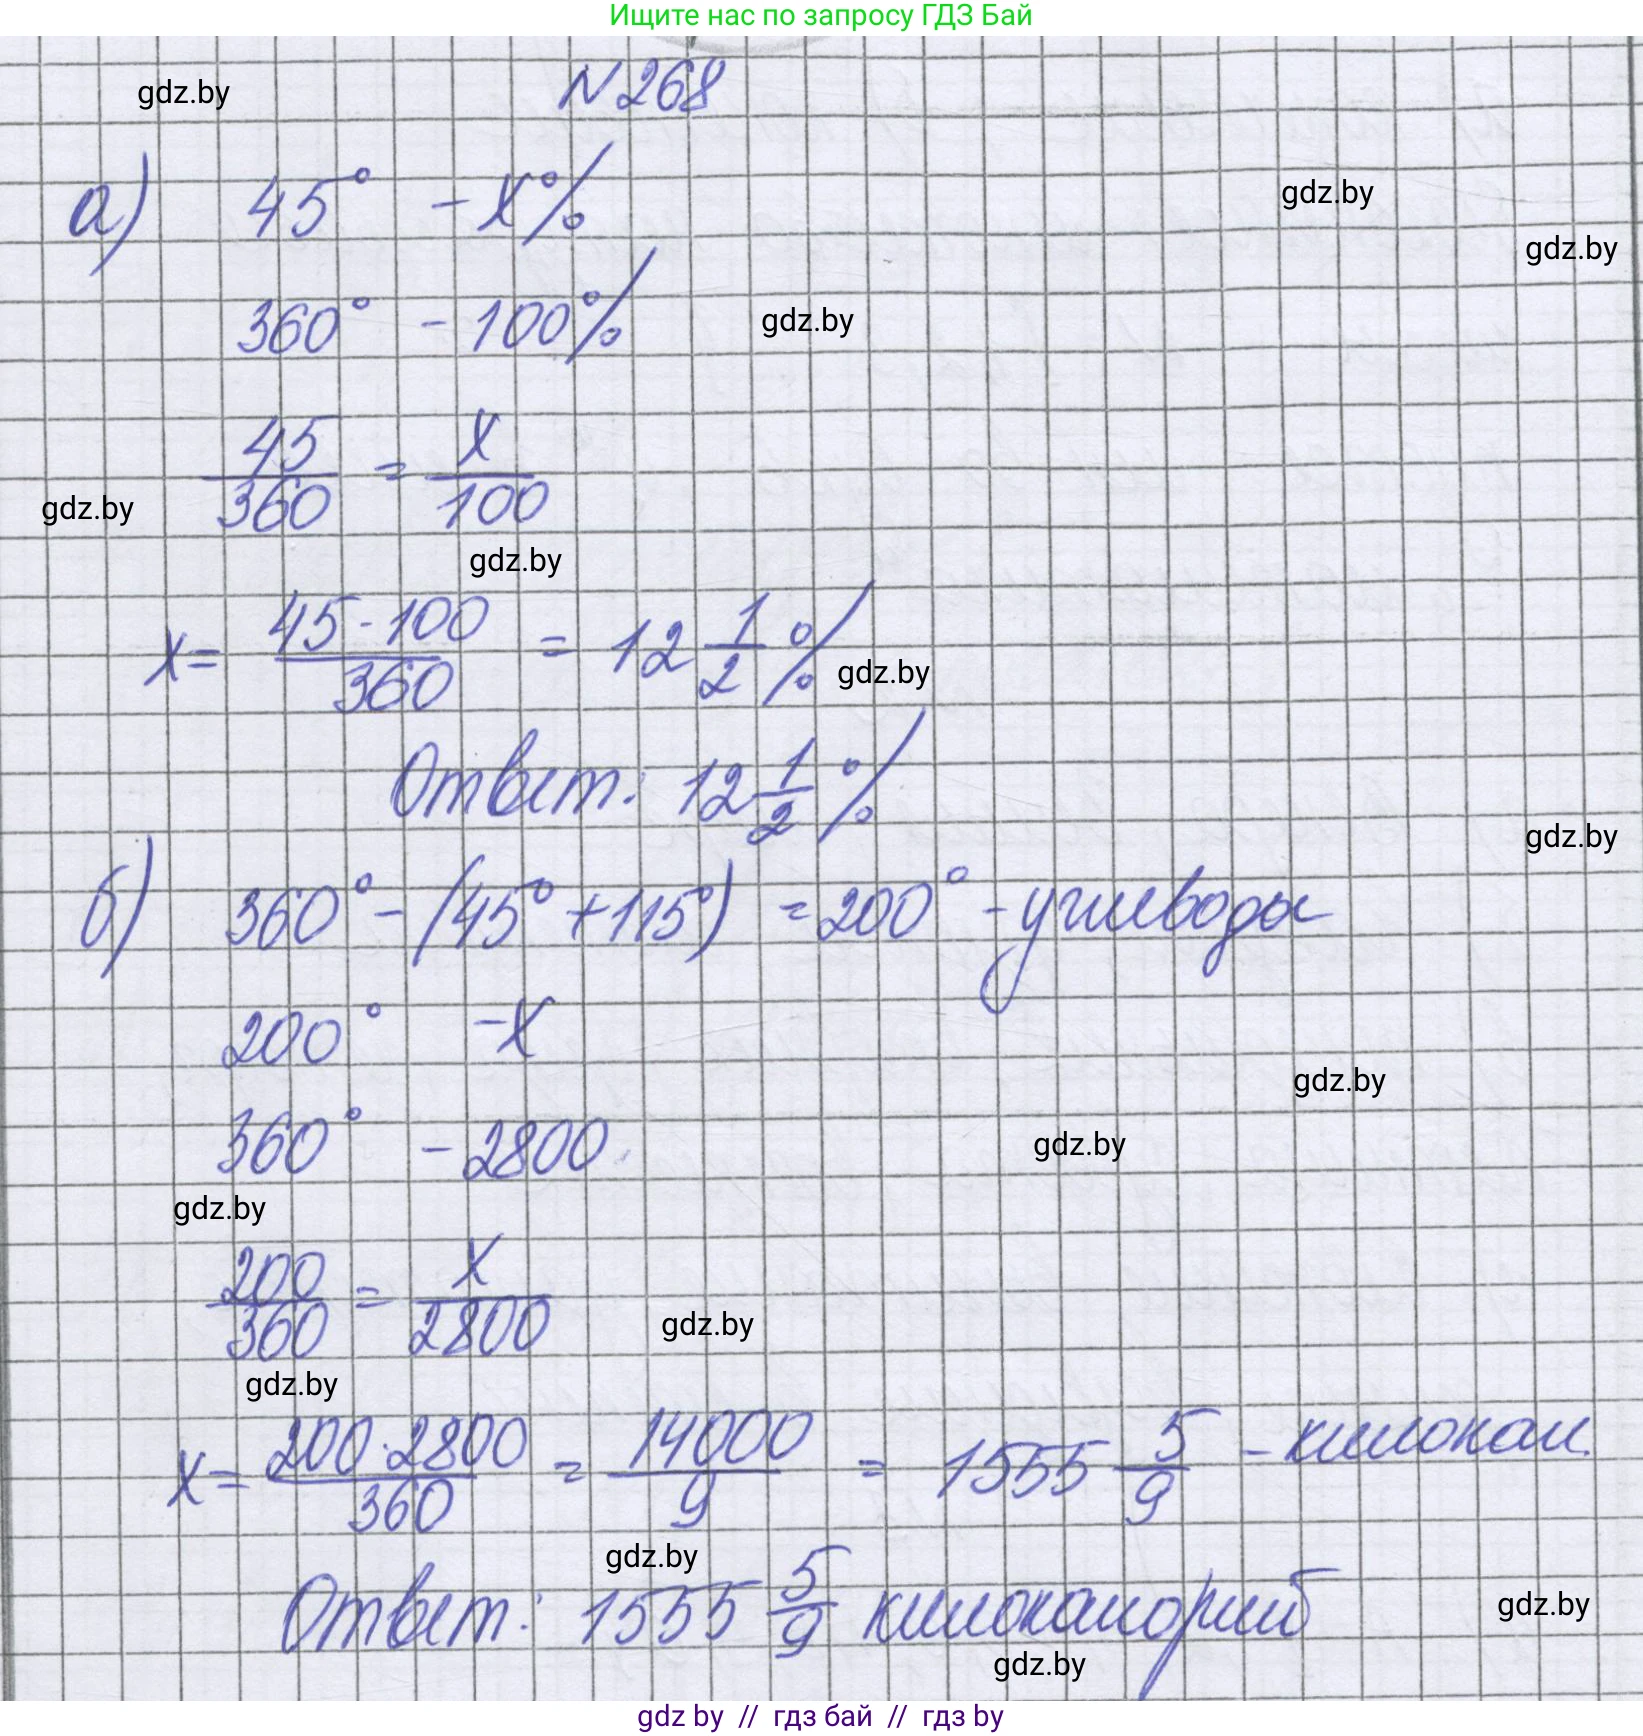 Ищите нас по запросу ГДЗ Бай
N 268
gdz.by
а) 45° - x%
gdz.by
gdz.by
360° - 100%
gdz.by
45/360 = x/100
gdz.by
gdz.by
x = 45·100/360 = 12 1/2 %
gdz.by
Ответ: 12 1/2 %
gdz.by
б) 360° - (45° + 115°) = 200° - углеводы
200° - x
gdz.by
360° - 2800
gdz.by
gdz.by
200/360 = x/2800
gdz.by
gdz.by
x = 200·2800/360 = 14000/9 = 1555 5/9 - килокал.
gdz.by
Ответ: 1555 5/9 килокалорий
gdz.by
gdz.by
gdz by // гдз бай // гдз by